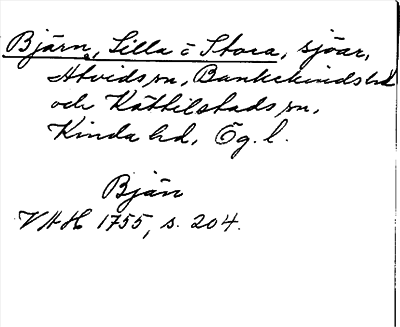 Bjärn, Lilla o Stora, sjöar,
Atvids sn, Bankekinds hd
och Kättilstads sn,
Kinda hd, Ög. l.
Bjän
VAH 1755, s. 204.